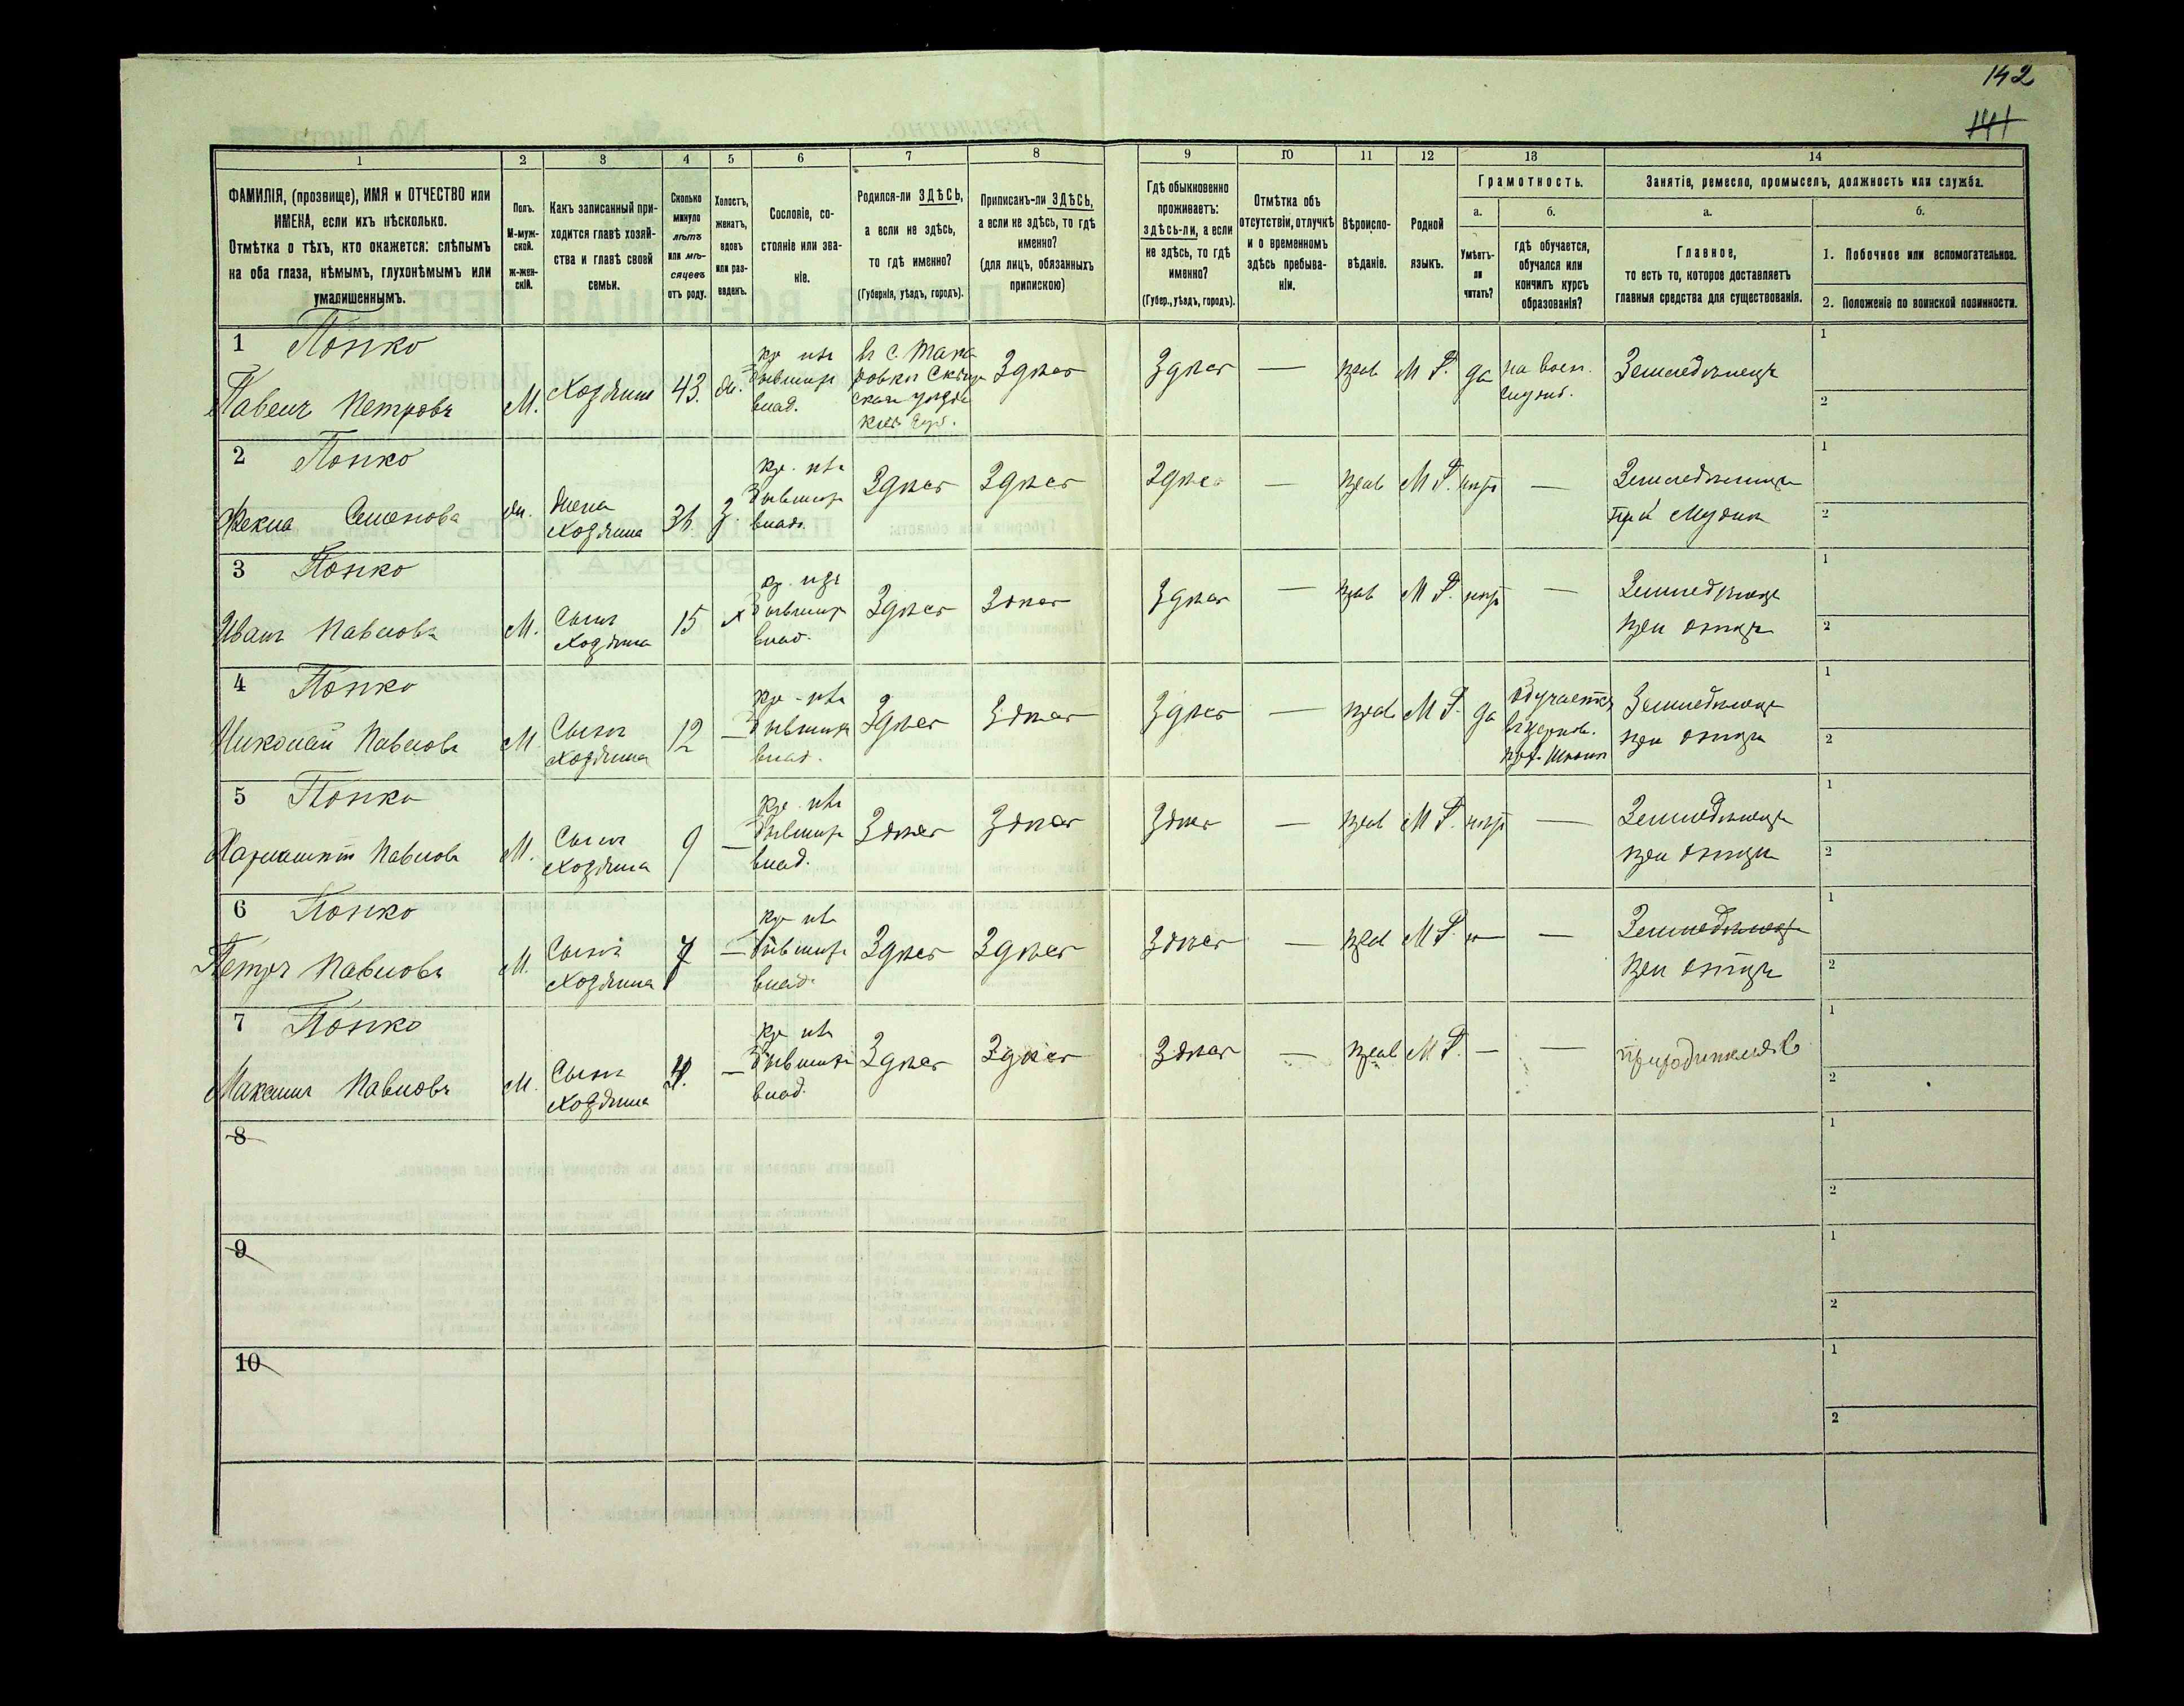 142
141
1 2 3 4 5 6 7 8 9 10 11 12 13 14
ФАМИЛІЯ, (прозвище), ИМЯ и ОТЧЕСТВО или
ИМЕНА, если ихъ нѣсколько.
Отмѣтка о тѣхъ, кто окажется: слѣпымъ
на оба глаза, нѣмымъ, глухонѣмымъ или
умалишеннымъ.
Полъ.
М-муж-
ской.
ж-жен-
скій.
Какъ записанный при-
ходится главѣ хозяй-
ства и главѣ своей
семьи.
Сколько
минуло
лѣтъ
или мѣ-
сяцевъ
отъ роду.
Холостъ,
женатъ,
вдовъ
или раз-
веденъ.
Сословіе, со-
стояніе или зва-
ніе.
Родился-ли ЗДѢСЬ,
а если не здѣсь,
то гдѣ именно?
(Губернія, уѣздъ, городъ).
Приписанъ-ли ЗДѢСЬ,
а если не здѣсь, то гдѣ
именно?
(для лицъ, обязанныхъ
припискою)
Гдѣ обыкновенно
проживаетъ:
здѣсь-ли, а если
не здѣсь, то гдѣ
именно?
(Губер., уѣздъ, городъ).
Отмѣтка объ
отсутствіи, отлучкѣ
и о временномъ
здѣсь пребыва-
ніи.
Вѣроиспо-
вѣданіе.
Родной
языкъ.
Грамотность.
а.
Умѣетъ-
ли
читать?
б.
гдѣ обучается,
обучался или
кончилъ курсъ
образованія?
Занятіе, ремесло, промыселъ, должность или служба.
а.
Главное,
то есть то, которое доставляетъ
главныя средства для существованія.
б.
1. Побочное или вспомогательное.
2. Положеніе по воинской повинности.
1 Попко
Павелъ Петровъ М. Хозяинъ 43. ж. кр. изъ бывших влад. въ с. Мака ровки Сквир ского уѣзда Киев. Губ. Здѣсь Здѣсь — прав М Р. да на воен. служб. Земледѣлецъ 1 2
2 Попко
Фекла Семенова ж. Жена хозяина 36 з. кр. изъ бывших влад. Здѣсь Здѣсь Здѣсь — прав М Р. нѣтъ — Земледѣлица при мужѣ 1 2
3 Попко
Иванъ Павловъ М. Сынъ хозяина 15 х кр. изъ бывших влад. Здѣсь Здѣсь Здѣсь — прав М Р. нѣтъ — Земледѣлецъ при отцѣ 1 2
4 Попко
Николай Павловъ М. Сынъ хозяина 12 — кр. изъ бывших влад. Здѣсь Здѣсь Здѣсь — прав М Р. да обучается въ церков. прих. школѣ Земледѣлецъ при отцѣ 1 2
5 Попко
Павловъ М. Сынъ хозяина 9 — кр. изъ бывших влад. Здѣсь Здѣсь Здѣсь — прав М Р. нѣтъ — Земледѣлецъ при отцѣ 1 2
6 Попко
Петръ Павловъ М. Сынъ хозяина 7 — кр изъ бывших влад. Здѣсь Здѣсь Здѣсь — прав М Р. — — Земледѣлецъ при отцѣ 1 2
7 Попко
Максимъ Павловъ М. Сынъ хозяина — кр изъ бывших влад. Здѣсь Здѣсь Здѣсь — прав М Р. — — 1 2
8 1 2
9 1 2
10 1 2